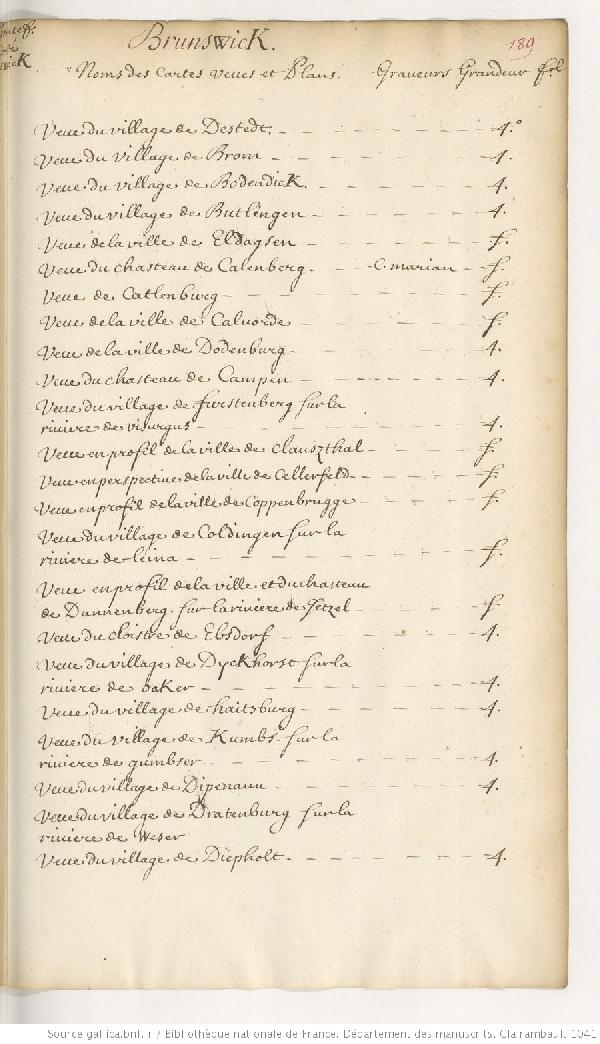 Brunswick.
189
Noms des Cartes veues et Plans. Graveurs Grandeur fol.
Veue du village de Destedt. 4.°
Veue du village de Brom 4.
Veue du village de Bodendick. 4.
Veue du village de Butlingen 4.
Veue de la ville de Eldagsen f.
Veue du chasteau de Calenberg. C. marian f.
Veue de Catlenburg f.
Veue de la ville de Caluorde f.
Veue de la ville de Dodenburg 4.
Veue du chasteau de Campen 4.
Veue du village de furstenberg sur la
riviere de visurgus 4.
Veue en profil de la ville de Clauszthal f.
Veue en perspective de la ville de Cellerfeld f.
Veue en profil de la ville de Coppenbrugge f.
Veue du village de Coldingen sur la
riviere de leina f.
Veue en profil de la ville et du chasteau
de Dannenberg sur la riviere de Jetzel f.
Veue du cloistre de Ebsdorf 4.
Veue du village de Dyckhorst sur la
riviere de oaker 4.
Veue du village de haitsburg 4.
Veue du village de Kumbs sur la
riviere de gumbser 4.
Veue du village de Dipenaun 4.
Veue du village de Dratenburg sur la
riviere de Weser
Veue du village de Diepholt. 4.
Source gallica.bnf.fr / Bibliothèque nationale de France. Département des manuscrits. Clairambault 1041